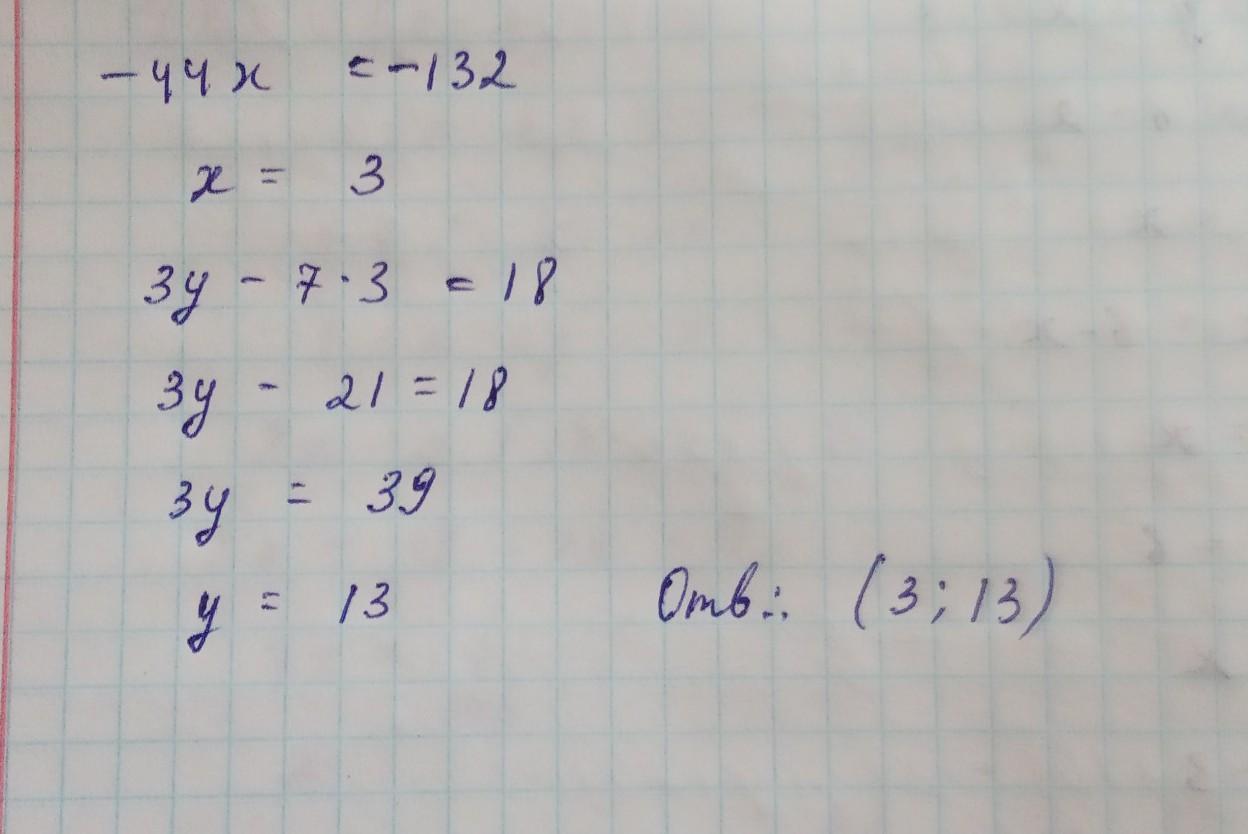 -44x = -132
x = 3
3y - 7·3 = 18
3y - 21 = 18
3y = 39
y = 13 Отв.: (3; 13)